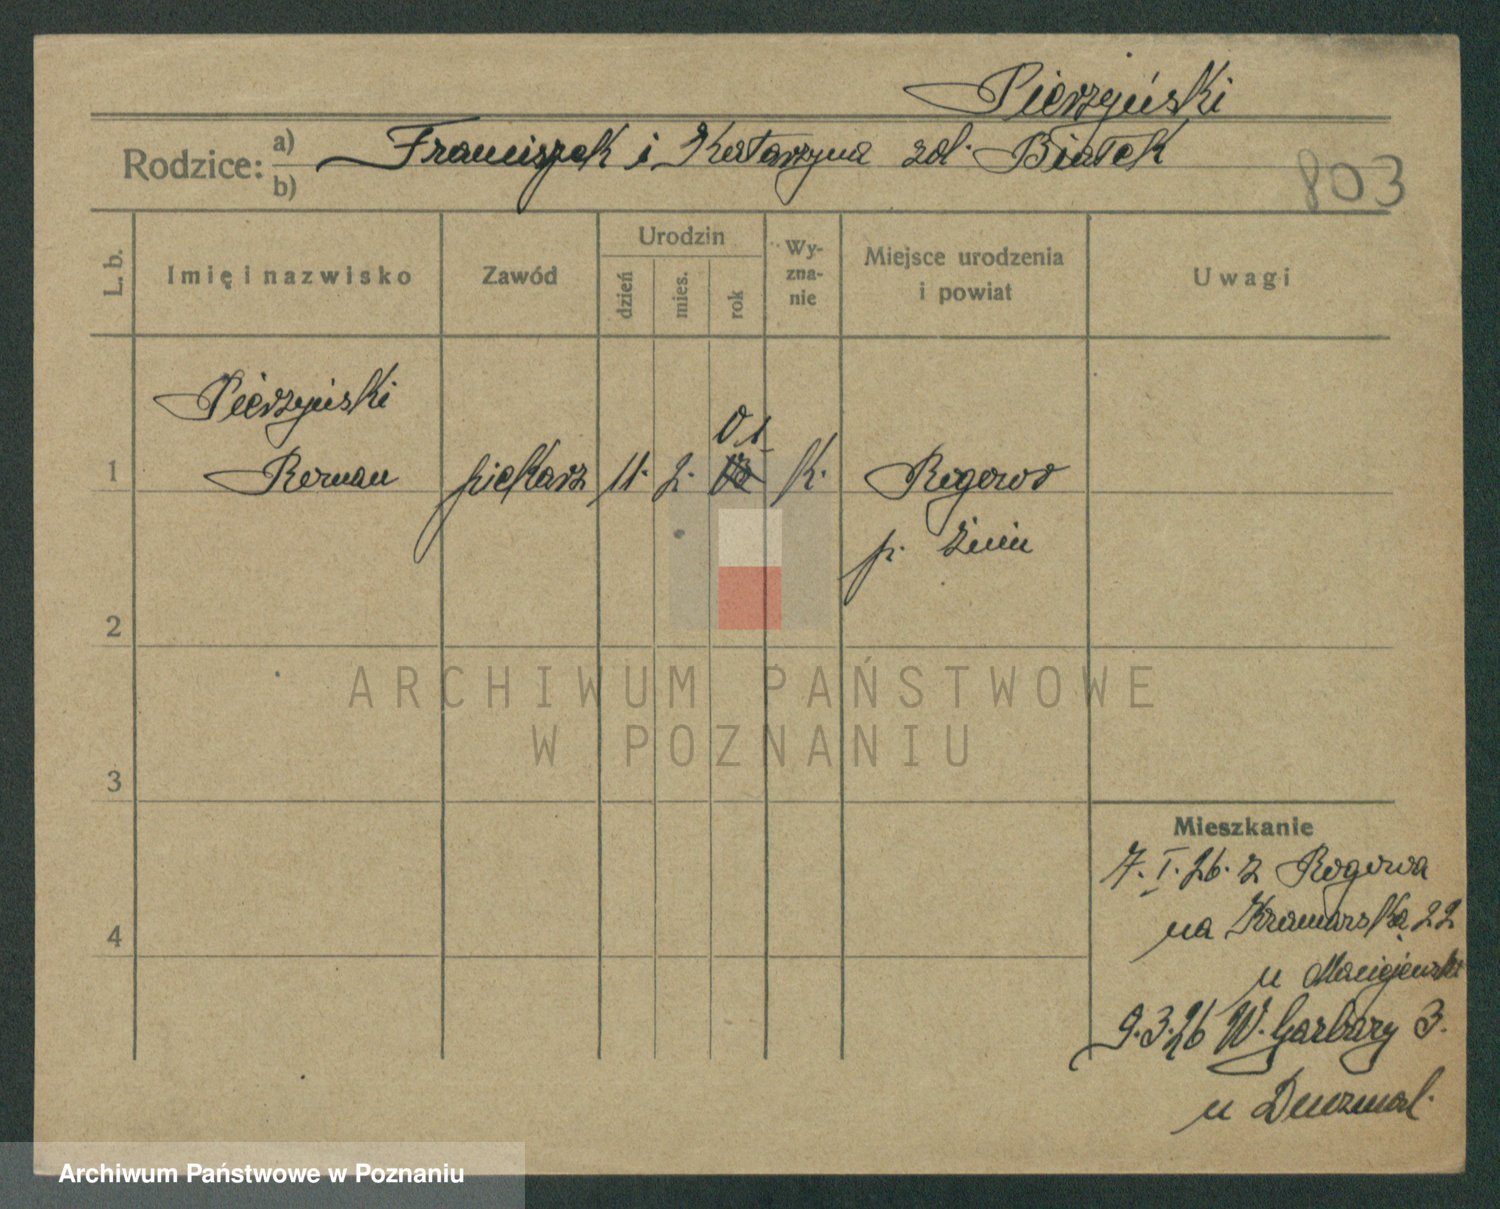 Pierzyński
Rodzice: a) Franciszek i Katarzyna zd. Białek
b)
803
L. b.
Imię i nazwisko
Zawód
Urodzin
dzień
mies.
rok
Wy-
zna-
nie
Miejsce urodzenia
i powiat
Uwagi
Pierzyński
01
1 Roman piekarz 11. 2. K. Rogowo
p. Żnin
2
3
4
Mieszkanie
7. I. 26. z Rogowa
na Kramarska 22
u Maciejewski
9.3.26 W. Garbary 3.
u
ARCHIWUM PAŃSTWOWE
W POZNANIU
Archiwum Państwowe w Poznaniu